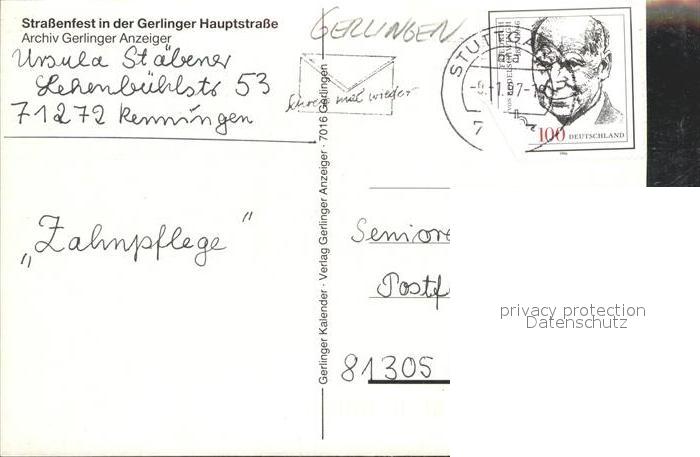 Straßenfest in der Gerlinger Hauptstraße
Archiv Gerlinger Anzeiger
Ursula Stäbener
Lehenbühlstr 53
71272 Renningen
"Zahnpflege"
GERLINGEN
mal wieder
STUTTGA
-9.-1.97-18
7
100 DEUTSCHLAND
Gerlinger Kalender · Verlag Gerlinger Anzeiger · 7016 Gerlingen
Seniore
Postf
81305
privacy protection
Datenschutz